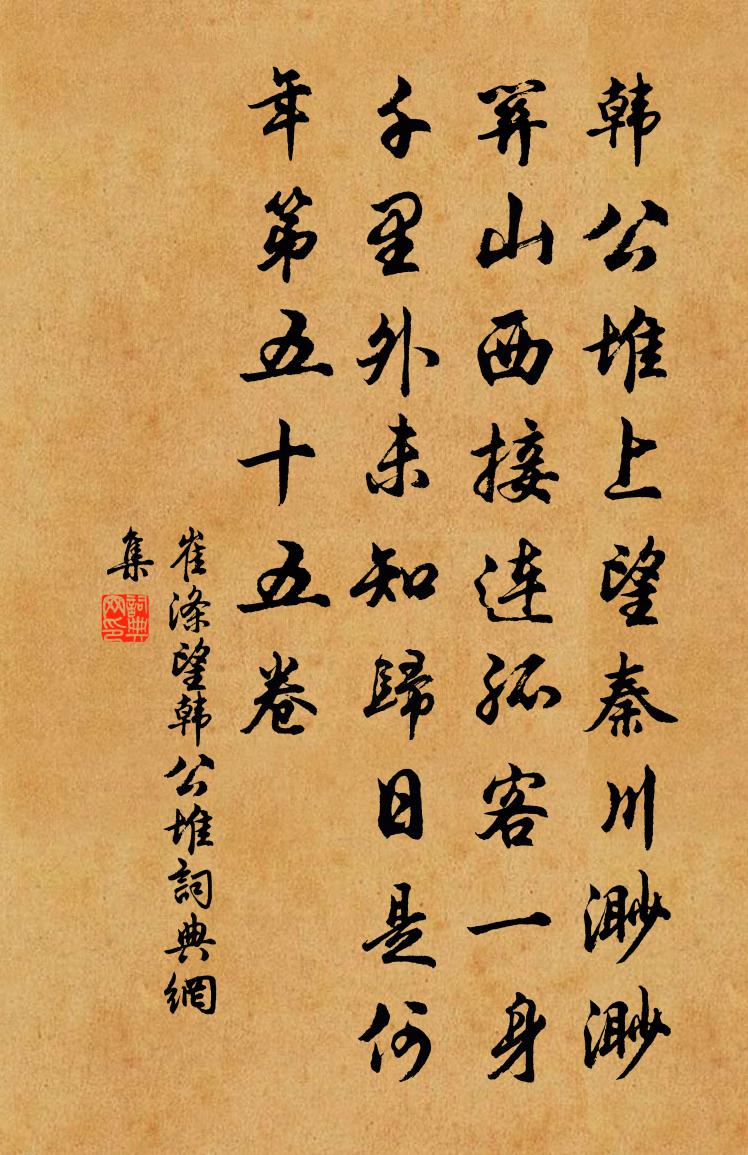 韩公堆上望秦川渺渺
關山西接連孤客一身
千里外未知歸日是何
年第五十五卷
崔滌望韩公堆詞典網
集
詞典
网印